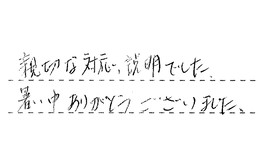 親切な対応、説明でした。
暑い中ありがとうございました。